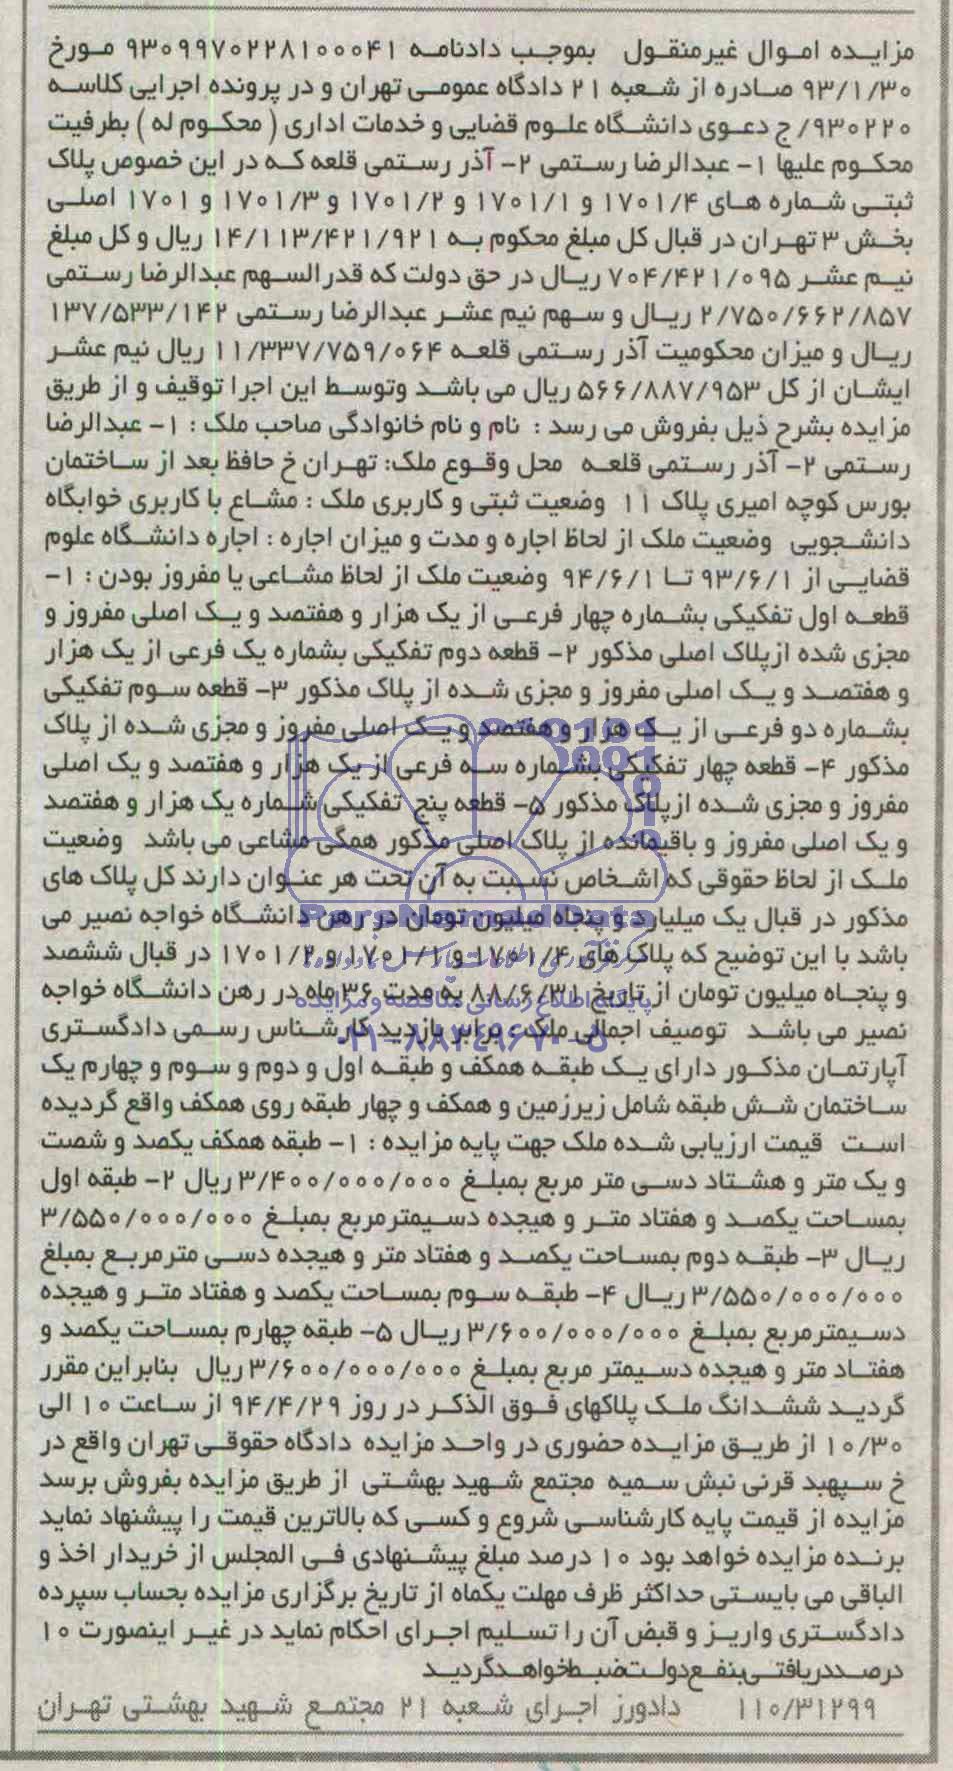 مزایده اموال غیرمنقول بموجب دادنامه ۹۳۰۹۹۷۰۲۲۸۱۰۰۰۴۱ مورخ
۹۳/۱/۳۰ صادره از شعبه ۲۱ دادگاه عمومی تهران و در پرونده اجرایی کلاسه
۹۳۰۲۲۰/ ج دعوی دانشگاه علوم قضایی و خدمات اداری ( محکوم له ) بطرفیت
محکوم علیها ۱- عبدالرضا رستمی ۲- آذر رستمی قلعه که در این خصوص پلاک
ثبتی شماره های ۱۷۰۱/۴ و ۱۷۰۱/۱ و ۱۷۰۱/۲ و ۱۷۰۱/۳ و ۱۷۰۱ اصلی
بخش ۳ تهران در قبال کل مبلغ محکوم به ۱۴/۱۱۳/۴۲۱/۹۲۱ ریال و کل مبلغ
نیم عشر ۷۰۴/۴۲۱/۰۹۵ ریال در حق دولت که قدرالسهم عبدالرضا رستمی
۲/۷۵۰/۶۶۲/۸۵۷ ریال و سهم نیم عشر عبدالرضا رستمی ۱۳۷/۵۳۳/۱۴۲
ریال و میزان محکومیت آذر رستمی قلعه ۱۱/۳۳۷/۷۵۹/۰۶۴ ریال نیم عشر
ایشان از کل ۵۶۶/۸۸۷/۹۵۳ ریال می باشد وتوسط این اجرا توقیف و از طریق
مزایده بشرح ذیل بفروش می رسد : نام و نام خانوادگی صاحب ملک : ۱- عبدالرضا
رستمی ۲- آذر رستمی قلعه محل وقوع ملک: تهران خ حافظ بعد از ساختمان
بورس کوچه امیری پلاک ۱۱ وضعیت ثبتی و کاربری ملک : مشاع با کاربری خوابگاه
دانشجویی وضعیت ملک از لحاظ اجاره و مدت و میزان اجاره : اجاره دانشگاه علوم
قضایی از ۹۳/۶/۱ تا ۹۴/۶/۱ وضعیت ملک از لحاظ مشاعی یا مفروز بودن : ۱-
قطعه اول تفکیکی بشماره چهار فرعی از یک هزار و هفتصد و یک اصلی مفروز و
مجزی شده ازپلاک اصلی مذکور ۲- قطعه دوم تفکیکی بشماره یک فرعی از یک هزار
و هفتصد و یک اصلی مفروز و مجزی شده از پلاک مذکور ۳- قطعه سوم تفکیکی
بشماره دو فرعی از یک هزار و هفتصد و یک اصلی مفروز و مجزی شده از پلاک
مذکور ۴- قطعه چهار تفکیکی بشماره سه فرعی از یک هزار و هفتصد و یک اصلی
مفروز و مجزی شده ازپلاک مذکور ۵- قطعه پنج تفکیکی شماره یک هزار و هفتصد
و یک اصلی مفروز و باقیمانده از پلاک اصلی مذکور همگی مشاعی می باشد وضعیت
ملک از لحاظ حقوقی که اشخاص نسبت به آن تحت هر عنوان دارند کل پلاک های
مذکور در قبال یک میلیارد و پنجاه میلیون تومان در رهن دانشگاه خواجه نصیر می
ParsNamadData
باشد با این توضیح که پلاک های ۱۷۰۱/۴ و ۱۷۰۱/۱ و ۱۷۰۱/۲ در قبال ششصد
و پنجاه میلیون تومان از تاریخ ۸۸/۶/۳۱ به مدت ۳۶ ماه در رهن دانشگاه خواجه
پایگاه اطلاع رسانی مناقصه و مزایده
نصیر می باشد توصیف اجمالی ملک : برابر بازدید کارشناس رسمی دادگستری
۰۲۱-۸۸۳۴۹۶۷۰-۵
آپارتمان مذکور دارای یک طبقه همکف و طبقه اول و دوم و سوم و چهارم یک
ساختمان شش طبقه شامل زیرزمین و همکف و چهار طبقه روی همکف واقع گردیده
است قیمت ارزیابی شده ملک جهت پایه مزایده : ۱- طبقه همکف یکصد و شصت
و یک متر و هشتاد دسی متر مربع بمبلغ ۳/۴۰۰/۰۰۰/۰۰۰ ریال ۲- طبقه اول
بمساحت یکصد و هفتاد متر و هیجده دسیمترمربع بمبلغ ۳/۵۵۰/۰۰۰/۰۰۰
ریال ۳- طبقه دوم بمساحت یکصد و هفتاد متر و هیجده دسی مترمربع بمبلغ
۳/۵۵۰/۰۰۰/۰۰۰ ریال ۴- طبقه سوم بمساحت یکصد و هفتاد متر و هیجده
دسیمترمربع بمبلغ ۳/۶۰۰/۰۰۰/۰۰۰ ریال ۵- طبقه چهارم بمساحت یکصد و
هفتاد متر و هیجده دسیمتر مربع بمبلغ ۳/۶۰۰/۰۰۰/۰۰۰ ریال بنابراین مقرر
گردید ششدانگ ملک پلاکهای فوق الذکر در روز ۹۴/۴/۲۹ از ساعت ۱۰ الی
۱۰/۳۰ از طریق مزایده حضوری در واحد مزایده دادگاه حقوقی تهران واقع در
خ سپهبد قرنی نبش سمیه مجتمع شهید بهشتی از طریق مزایده بفروش برسد
مزایده از قیمت پایه کارشناسی شروع و کسی که بالاترین قیمت را پیشنهاد نماید
برنده مزایده خواهد بود ۱۰ درصد مبلغ پیشنهادی فی المجلس از خریدار اخذ و
الباقی می بایستی حداکثر ظرف مهلت یکماه از تاریخ برگزاری مزایده بحساب سپرده
دادگستری واریز و قبض آن را تسلیم اجرای احکام نماید در غیر اینصورت ۱۰
درصددریافتی بنفع دولت ضبط خواهد گردید
۱۱۰/۳۱۲۹۹ دادورز اجرای شعبه ۲۱ مجتمع شهید بهشتی تهران